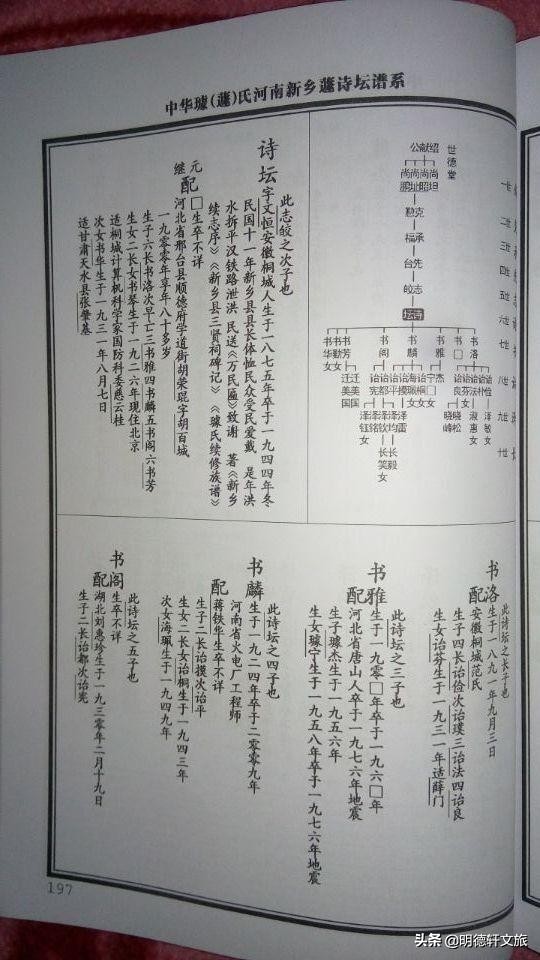 中华璩(蘧)氏河南新乡蘧诗坛谱系
世德堂
绍献公
尚坦
尚昭
尚址
尚鹏
克勤
承福
先台
志皎
诗坛
书洛
书□
书雅
书麟
书阁
书芳
书勤女
书华女
一世
二世
三世
四世
五世
六世
七世
八世
九世
十世
诗坛
此志皎之次子也
字文恒安徽桐城人生于一八七五年卒于一九四四年冬
民国十一年新乡县县长体恤民众受民爱戴 是年洪
水拆平汉铁路泄洪 民送《万民匾》致谢 著《新乡
续志序》《新乡县三贤祠碑记》《璩氏续修族谱》
元配□生卒不详
继配河北省邢台县顺德府学道街胡荣琨字胡百城
一九〇〇年享年八十多岁
生子六长书洛次早亡三书雅四书麟五书阁六书芳
生女二长女书琴生于一九二六年现住北京
适桐城计算机科学家国防科委慈云桂
次女书华生于一九三一年八月七日
适甘肃天水县张肇基
书洛
此诗坛之长子也
生于一八九一年九月三日
配安徽桐城范氏
生子四长诒俭次诒璞三诒法四诒良
生女诒芬生于一九三一年适薛门
书雅
此诗坛之三子也
生于一九〇□年卒于一九六□年
配河北省唐山人卒于一九七六年地震
生子璩杰生于一九五六年
生女璩宁生于一九五八年卒于一九七六年地震
书麟
此诗坛之四子也
生于一九二四年卒于二〇〇九年
河南省火电厂工程师
配蒋铁华生卒不详
生子二长诒摸次诒平
生女二长女诒桐生于一九四三年
次女海珮生于一九四九年
书阁
此诗坛之五子也
生卒不详
配湖北刘惠珍生于一九三〇年二月十九日
生子二长诒都次诒宪
197
头条 @明德轩文旅